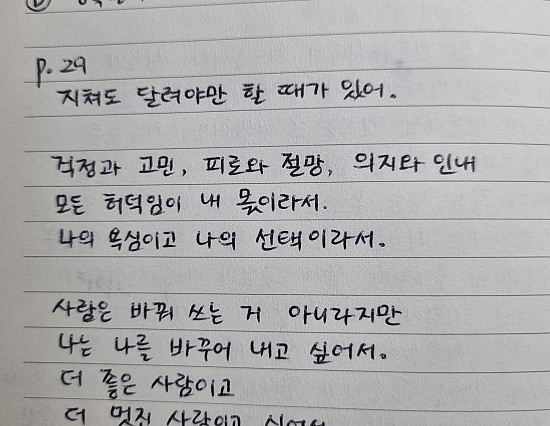 p. 29
지쳐도 달려야만 할 때가 있어.
걱정과 고민, 피로와 절망, 의지와 인내
모든 허덕임이 내 몫이라서.
나의 욕심이고 나의 선택이라서.
사람은 바꿔 쓰는 거 아니라지만
나는 나를 바꾸어 내고 싶어서.
더 좋은 사람이고
더 멋진 사람이고 싶어서